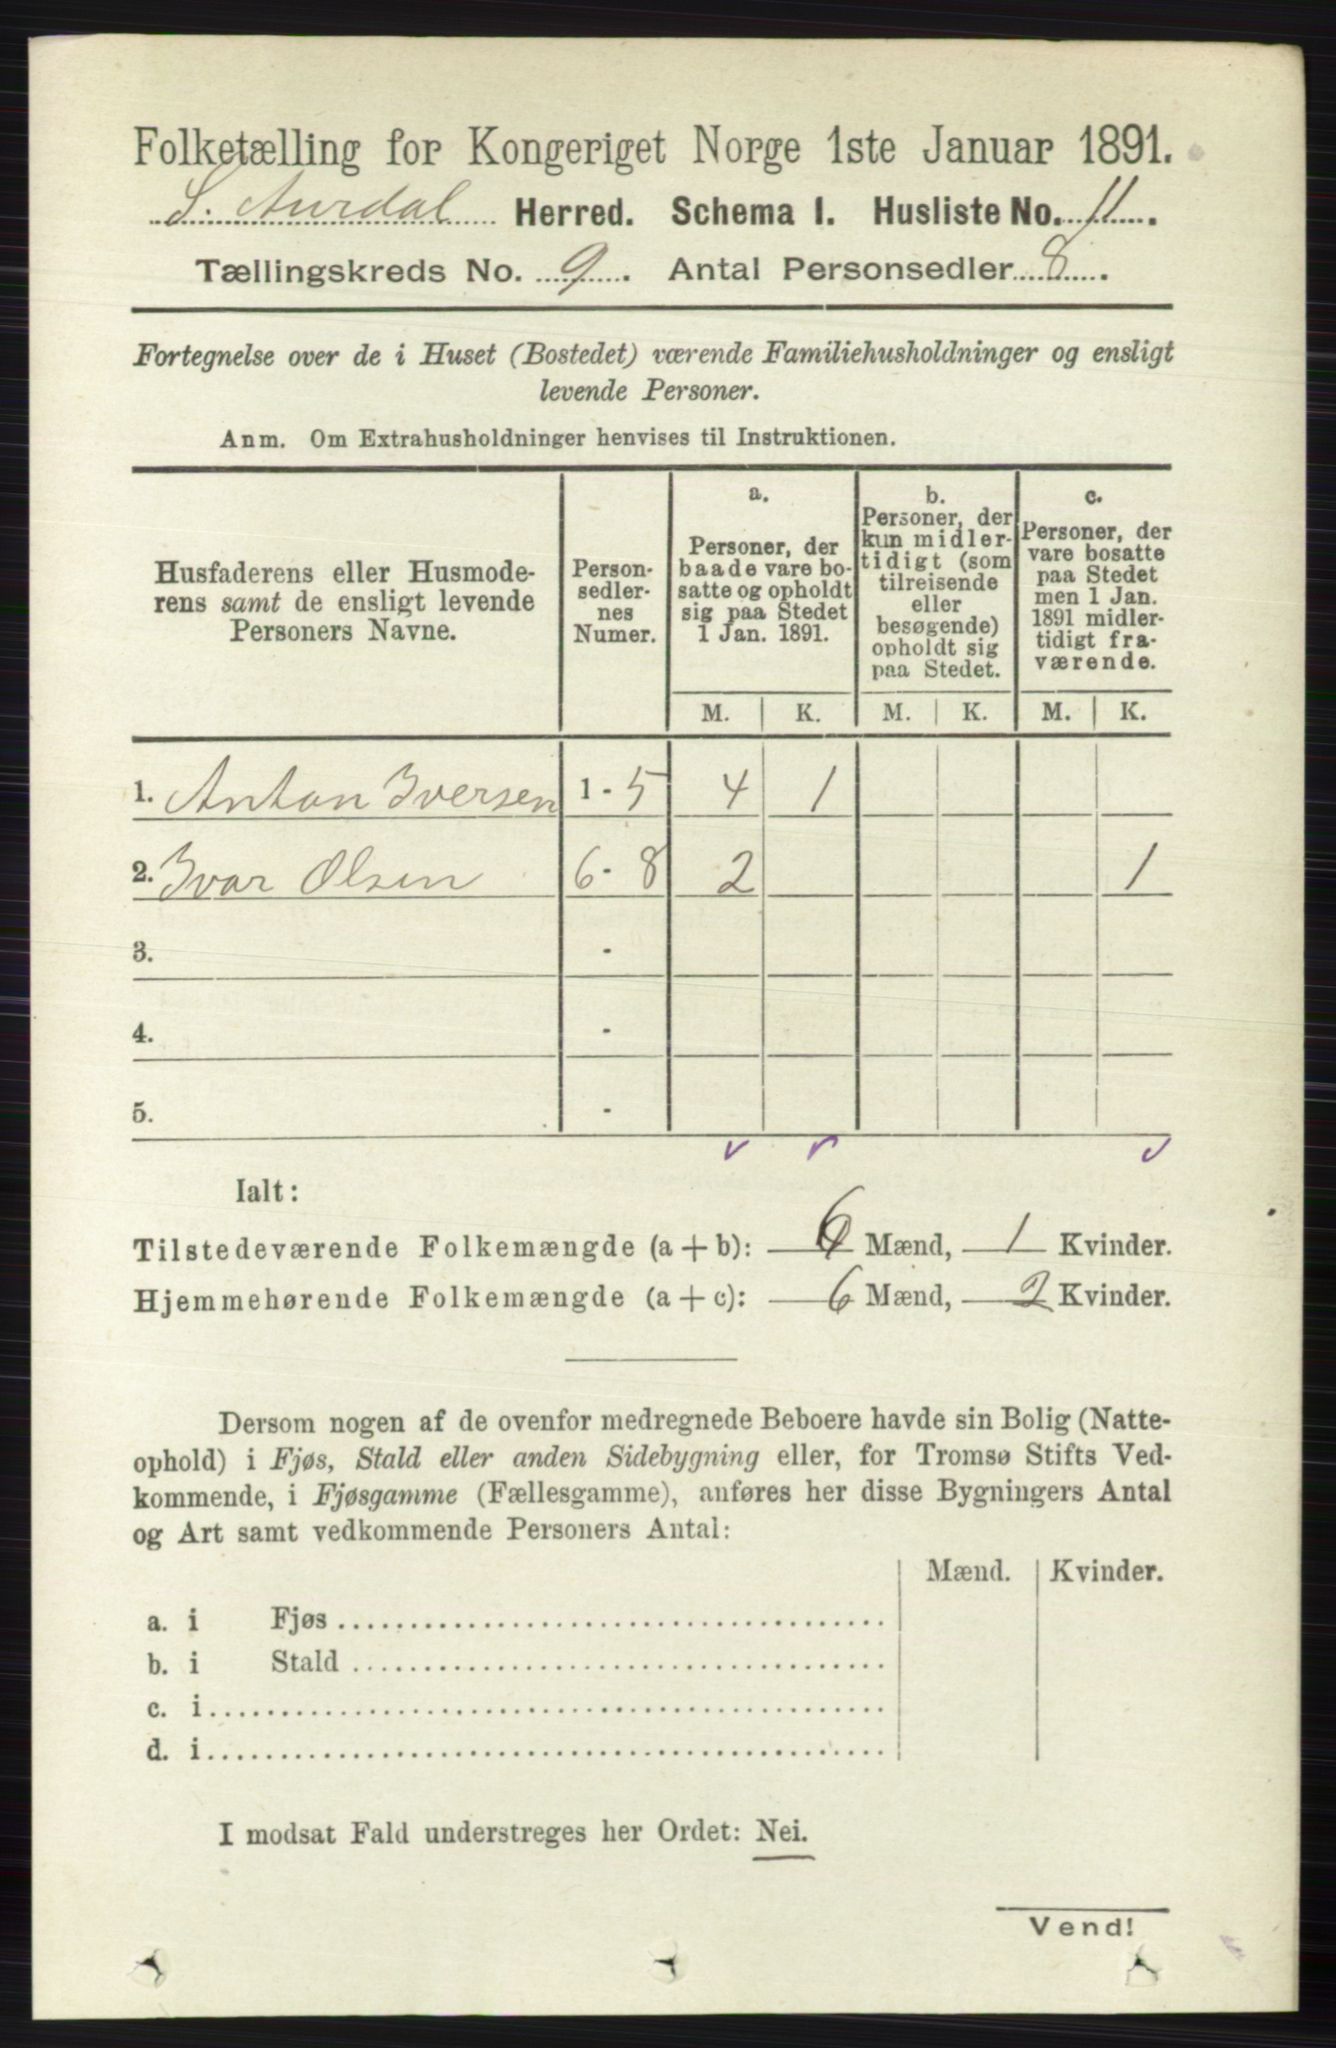 Folketælling for Kongeriget Norge 1ste Januar 1891.
S. Aurdal Herred. Schema 1. Husliste No. 11.
Tællingskreds No. 9. Antal Personsedler 8.
Fortegnelse over de i Huset (Bostedet) værende Familiehusholdninger og ensligt
levende Personer.
Anm. Om Extrahusholdninger henvises til Instruktionen.
Husfaderens eller Husmode-
rens samt de ensligt levende
Personers Navne.
Person-
sedler-
nes
Numer.
a.
Personer, der
baade vare bo-
satte og opholdt
sig paa Stedet
1 Jan. 1891.
b.
Personer, der
kun midler-
tidigt (som
tilreisende
eller
besøgende)
opholdt sig
paa Stedet.
c.
Personer, der
vare bosatte
paa Stedet
men 1 Jan.
1891 midler-
tidigt fra-
værende.
M. K. M. K. M. K.
1. Anton Iversen 1 - 5 4 1
2. Ivar Olsen 6 - 8 2 1
3. -
4. -
5. -
Ialt:
Tilstedeværende Folkemængde (a + b): 6 Mænd, 1 Kvinder.
Hjemmehørende Folkemængde (a + c): 6 Mænd, 2 Kvinder.
Dersom nogen af de ovenfor medregnede Beboere havde sin Bolig (Natte-
ophold) i Fjøs, Stald eller anden Sidebygning eller, for Tromsø Stifts Ved-
kommende, i Fjøsgamme (Fællesgamme), anføres her disse Bygningers Antal
og Art samt vedkommende Personers Antal:
Mænd. Kvinder.
a. i Fjøs
b. i Stald
c. i
d. i
I modsat Fald understreges her Ordet: Nei.
Vend!